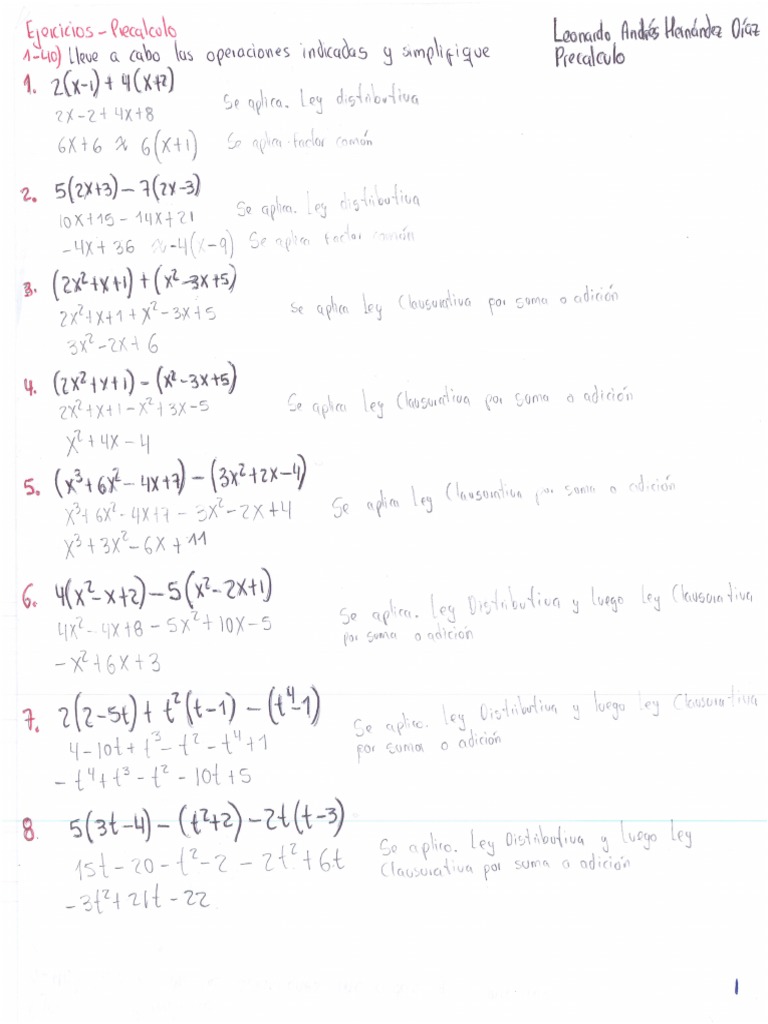 Ejercicios - Precalculo
Leonardo Andrés Hernández Díaz
Precalculo
1-40) Lleve a cabo las operaciones indicadas y simplifique
1. 2(x-1) + 4(x+2)
2x-2 + 4x+8
Se aplica. Ley distributiva
6x+6 ≈ 6(x+1) Se aplica factor común
2. 5(2x+3) - 7(2x-3)
10x+15 - 14x+21
Se aplica. Ley distributiva
-4x+36 ≈ -4(x-9) Se aplica factor común
3. (2x²+x+1) + (x²-3x+5)
2x²+x+1+x²-3x+5
Se aplica Ley Clausurativa por suma o adición
3x²-2x+6
4. (2x²+x+1) - (x²-3x+5)
2x²+x+1-x²+3x-5
Se aplica Ley Clausurativa por suma o adición
x²+4x-4
5. (x³+6x²-4x+7) - (3x²+2x-4)
x³+6x²-4x+7-3x²-2x+4
Se aplica Ley Clausurativa por suma o adición
x³+3x²-6x+11
6. 4(x²-x+2) - 5(x²-2x+1)
4x²-4x+8-5x²+10x-5
-x²+6x+3
Se aplica. Ley Distributiva y luego Ley Clausurativa
por suma o adición
7. 2(2-5t) + t²(t-1) - (t⁴-1)
4-10t+t³-t²-t⁴+1
-t⁴+t³-t²-10t+5
Se aplico. Ley Distributiva y luego Ley Clausurativa
por suma o adición
8. 5(3t-4) - (t²+2) - 2t(t-3)
15t-20-t²-2-2t²+6t
-3t²+21t-22
Se aplico. Ley Distributiva y luego Ley
Clausurativa por suma o adición
1